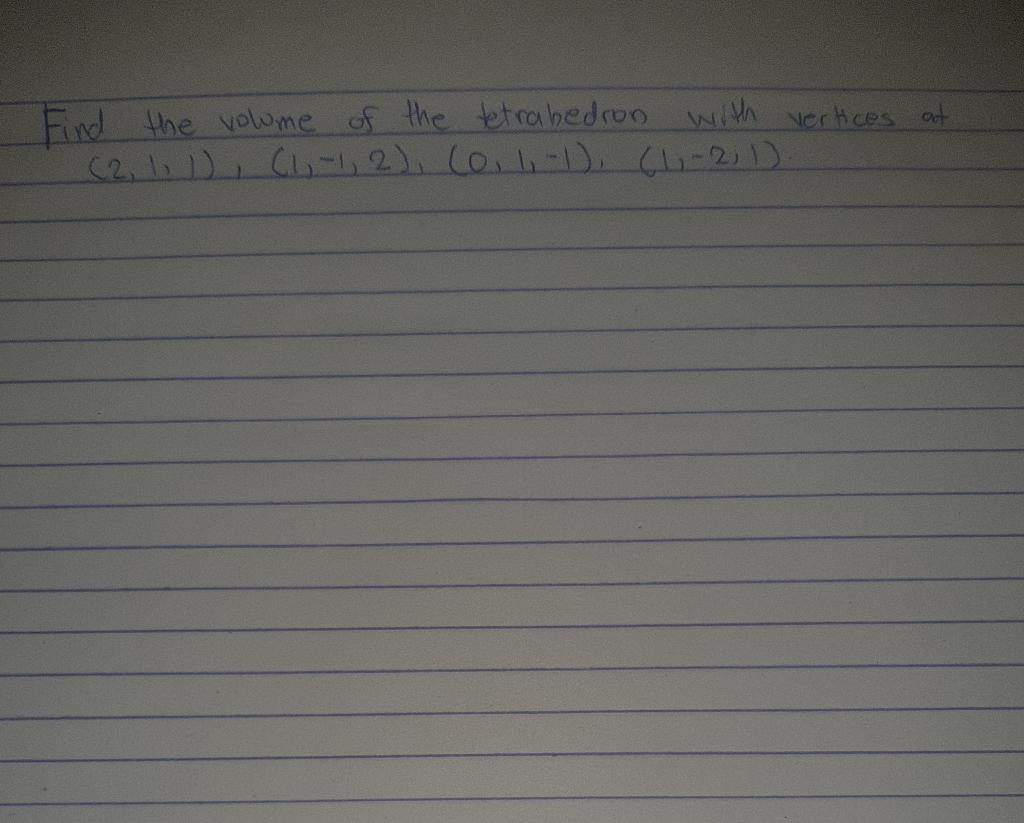 Find the volume of the tetrahedron with vertices at
(2, 1, 1), (1, -1, 2), (0, 1, -1), (1, -2, 1).